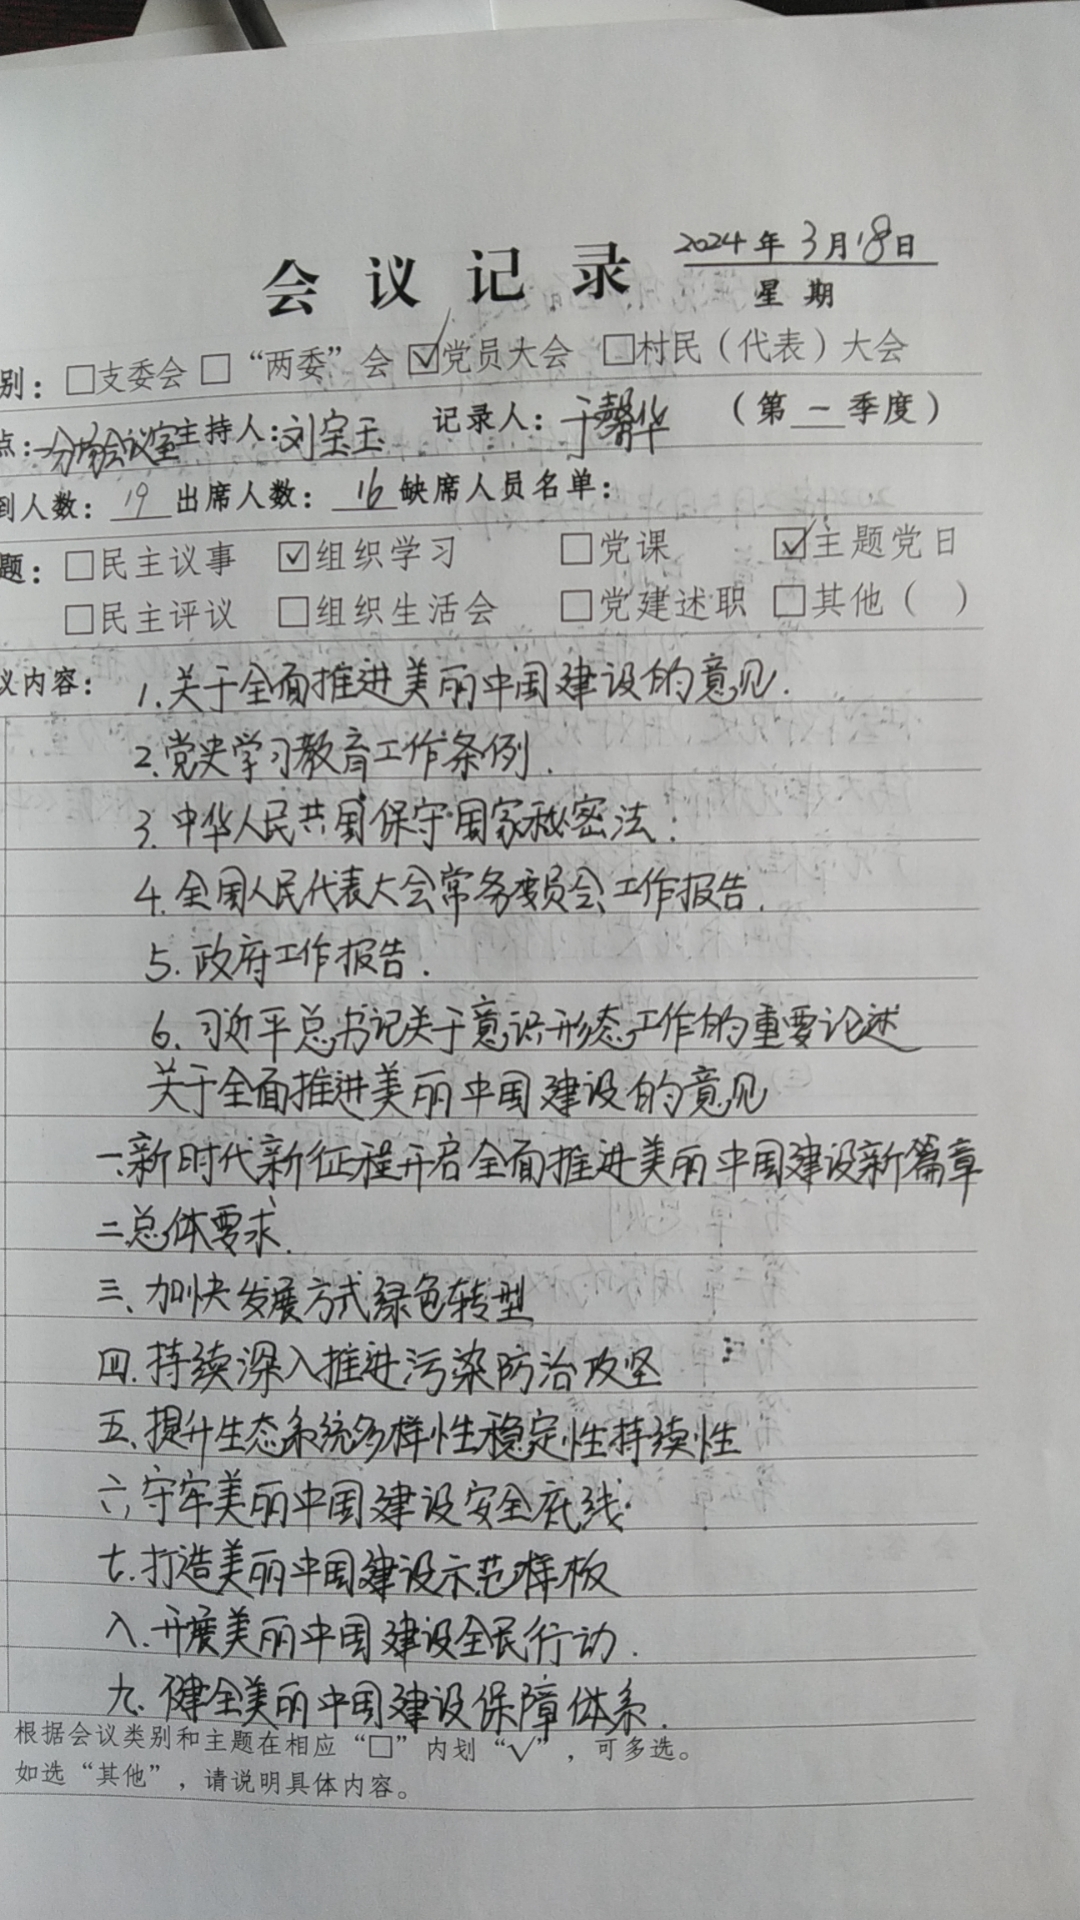 会议记录 2024年3月18日
星期
别：□支委会 □“两委”会 ☑党员大会 □村民（代表）大会
点：一分场会议室 主持人：刘宝玉 记录人：于馨华 （第一季度）
到人数：19 出席人数：16 缺席人员名单：
题：□民主议事 ☑组织学习 □党课 ☑主题党日
□民主评议 □组织生活会 □党建述职 □其他（ ）
议内容：1.关于全面推进美丽中国建设的意见.
2.党史学习教育工作条例.
3.中华人民共国保守国家秘密法.
4.全国人民代表大会常务委员会工作报告.
5.政府工作报告.
6.习近平总书记关于意识形态工作的重要论述
关于全面推进美丽中国建设的意见
一、新时代新征程开启全面推进美丽中国建设新篇章
二、总体要求.
三、加快发展方式绿色转型
四.持续深入推进污染防治攻坚
五、提升生态系统多样性稳定性持续性
六、守牢美丽中国建设安全底线.
七.打造美丽中国建设示范样板
八.开展美丽中国建设全民行动.
九、健全美丽中国建设保障体系.
根据会议类别和主题在相应“□”内划“√”，可多选。
如选“其他”，请说明具体内容。